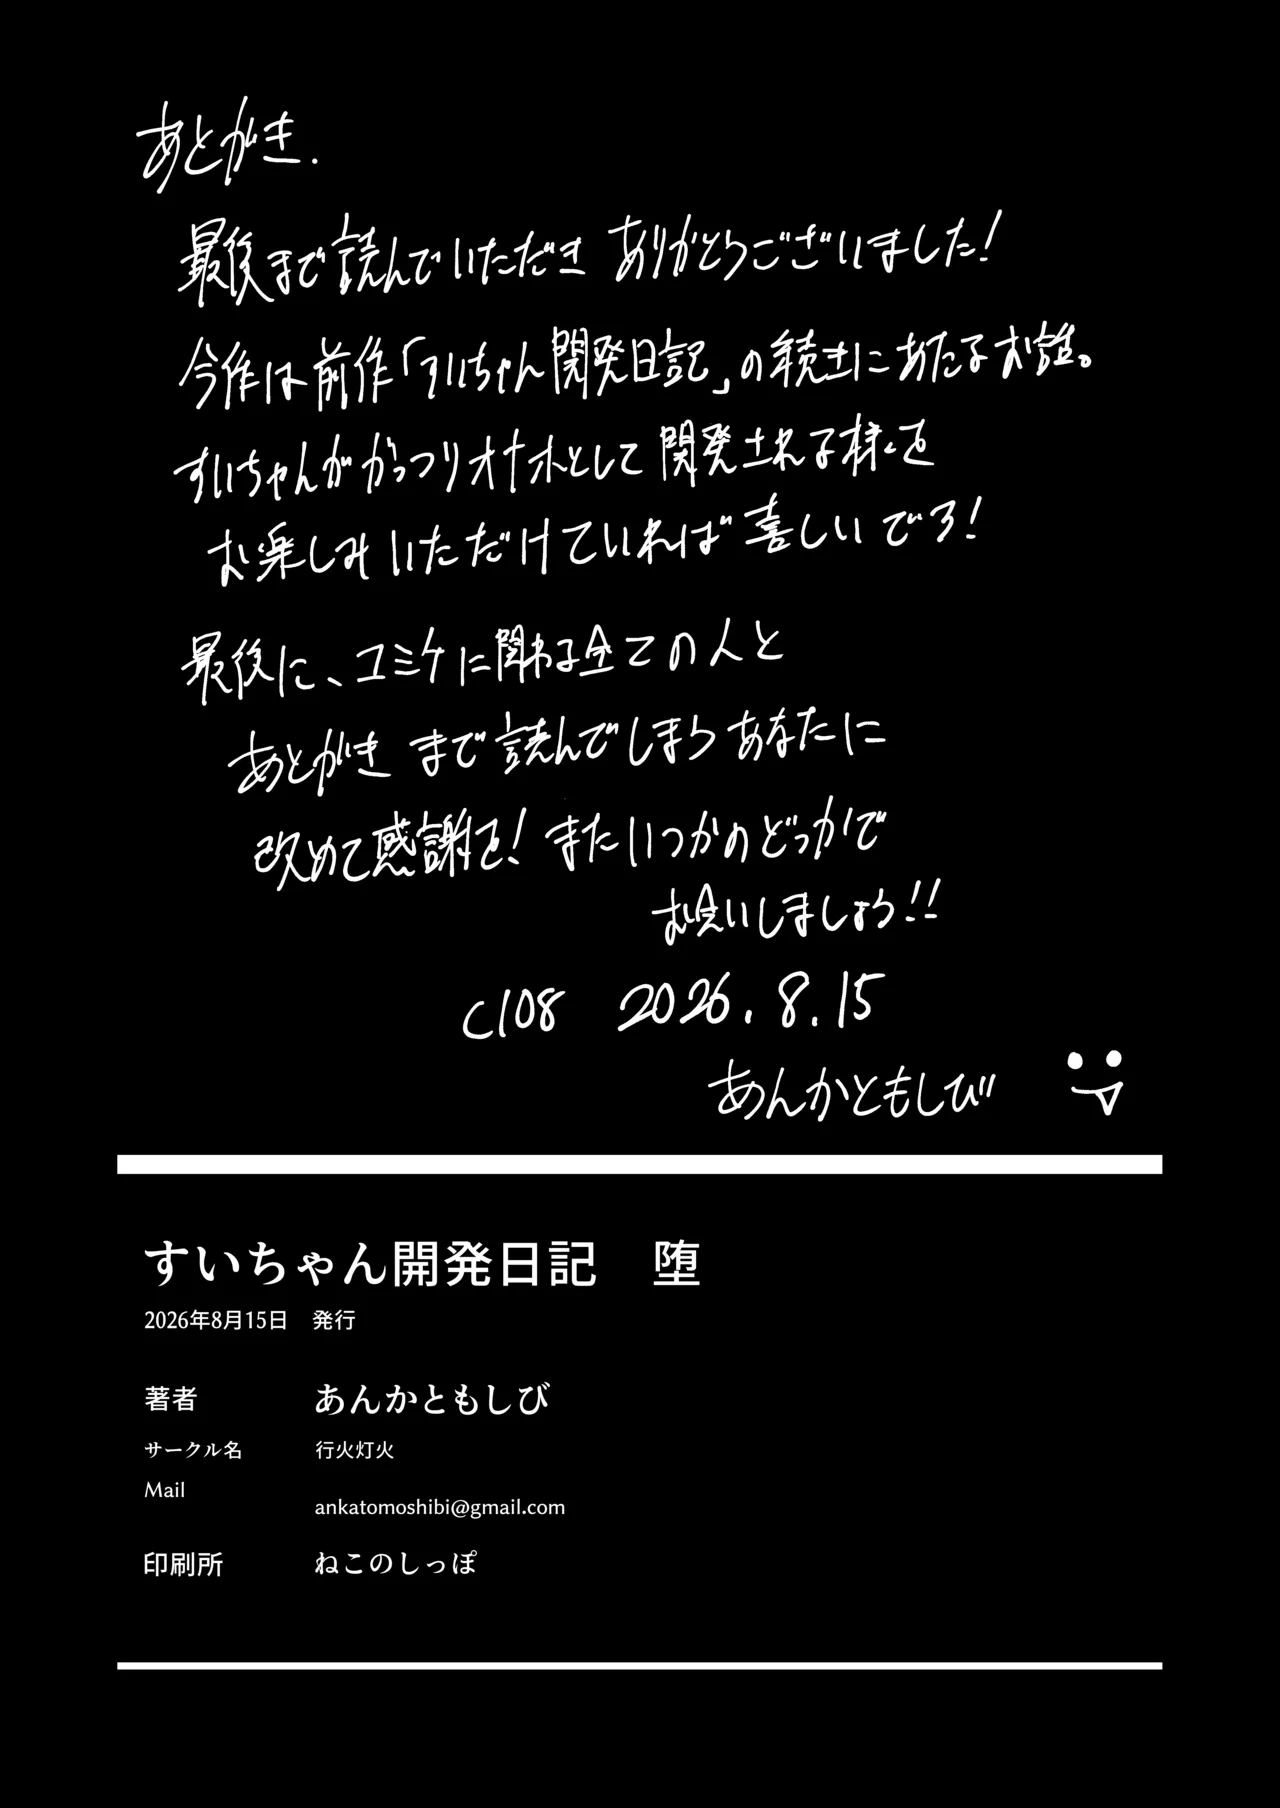 あとがき.
最後まで読んでいただき ありがとうございました!
今作は前作「すいちゃん開発日記」の続きにあたるお話。
すいちゃんががっつりオナホとして開発される様を
お楽しみいただけていれば喜しいでろ!
最後に、コミケに関わる全ての人と
あとがきまで読んでしまうあなたに
改めて感謝を! またいつかのどっかで
お会いしましょう!!
C108 2026.8.15
あんかともしび
すいちゃん開発日記 堕
2026年8月15日 発行
著者 あんかともしび
サークル名 行火灯火
Mail ankatomoshibi@gmail.com
印刷所 ねこのしっぽ